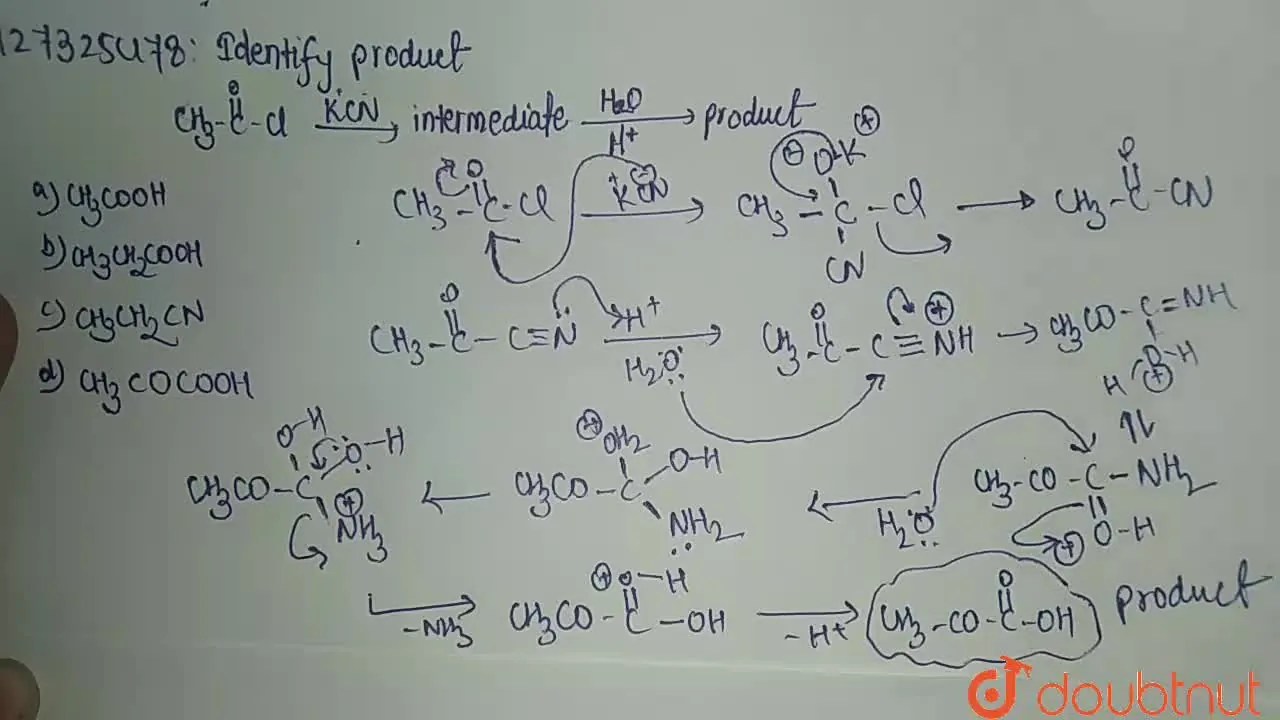 127325478: Identify product
CH3-C(=O)-Cl KCN→ intermediate H2O/H+→ product
a) CH3COOH
b) CH3CH2COOH
c) CH3CH2CN
d) CH3COCOOH
CH3-C(=O)-Cl +K ⊖CN→ CH3-C(⊖O-K⊕)(CN)-Cl → CH3-C(=O)-CN
CH3-C(=O)-C≡N: H+/H2O:→ CH3-C(=O)-C≡NH⊕ → CH3CO-C=NH
H O-H ⊕
⇌
CH3-CO-C-NH2
=O-H ⊕
← H2O:
CH3CO-C(⊕OH2)(O-H)-NH2
←
CH3CO-C(O-H)(O-H)-⊕NH3
-NH3→ CH3CO-C(=⊕O-H)-OH -H+→ CH3-CO-C(=O)-OH product
doubtnut